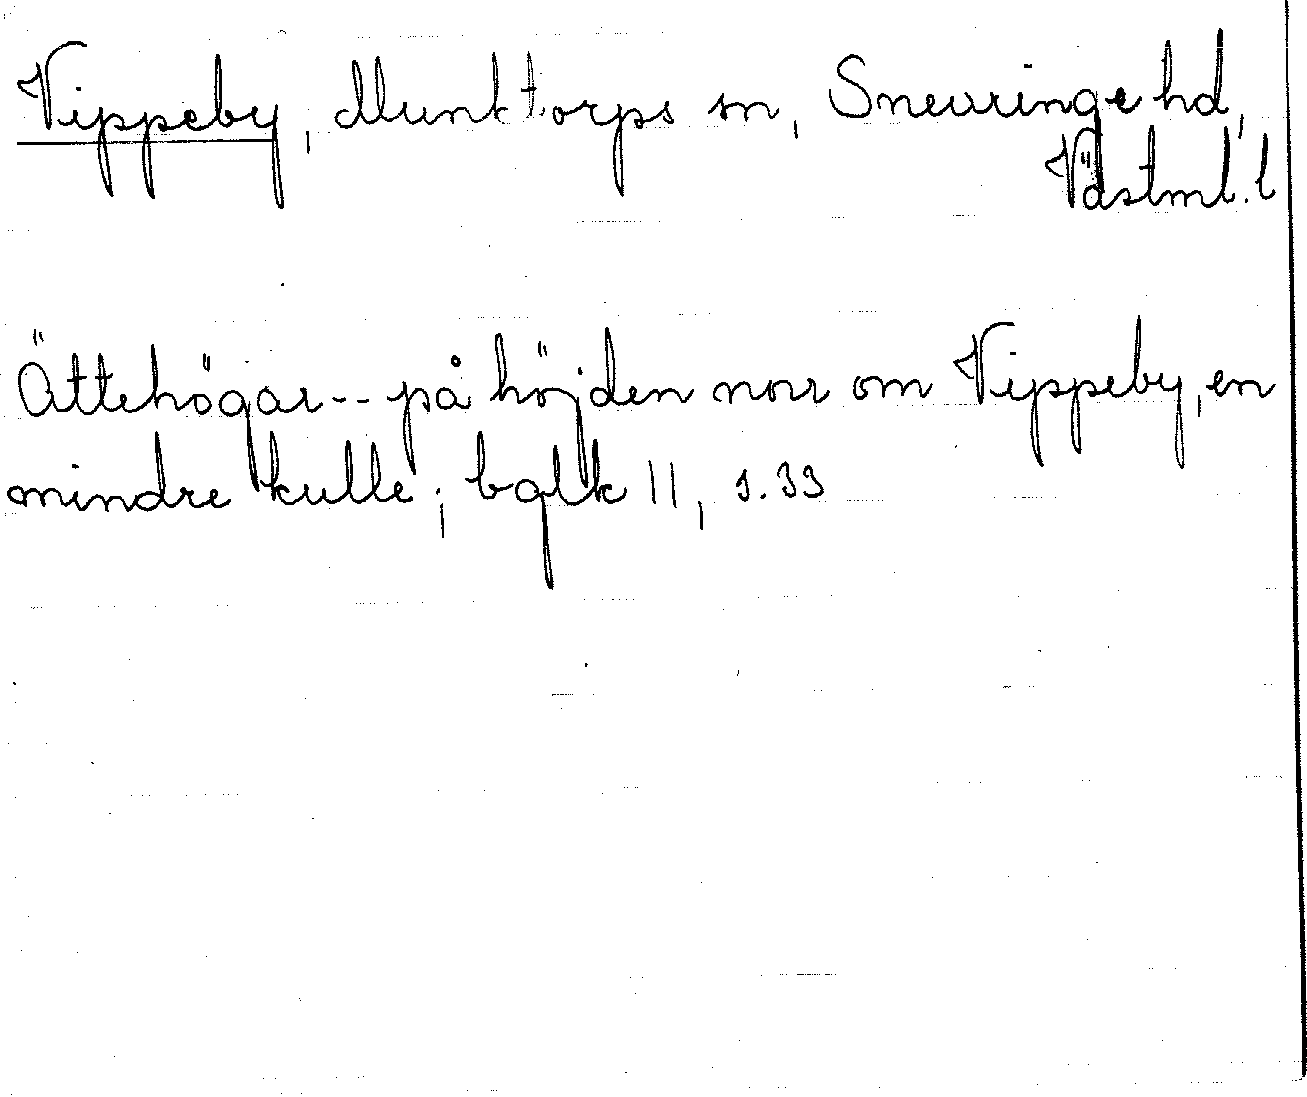 Vippeby, Munktorps sn, Snevringe hd,
Västml. l
Ättehögar -- på höjden norr om Vippeby, en
mindre kulle; bglk 11, s. 33